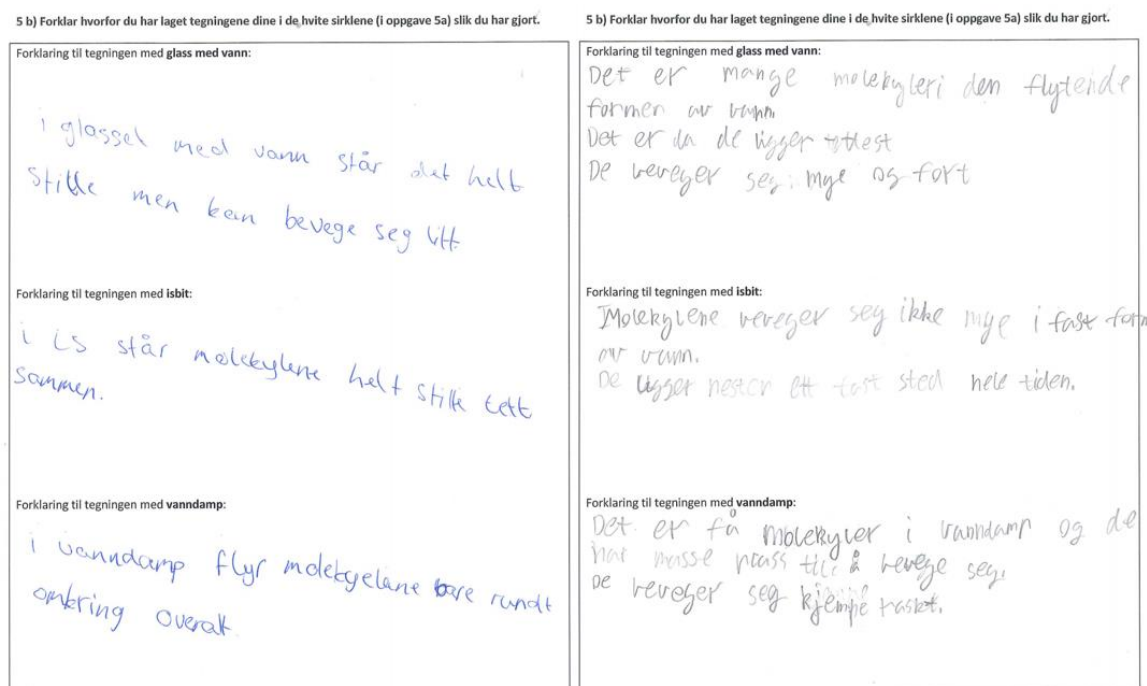 5 b) Forklar hvorfor du har laget tegningene dine i de hvite sirklene (i oppgave 5a) slik du har gjort.
Forklaring til tegningen med glass med vann:
i glassel med vann står det helt
stille men kan bevege seg litt
Forklaring til tegningen med isbit:
i is står molekylene helt stille tett
sammen.
Forklaring til tegningen med vanndamp:
i vanndamp flyr molekyelane bare rundt
omkring overalt
5 b) Forklar hvorfor du har laget tegningene dine i de hvite sirklene (i oppgave 5a) slik du har gjort.
Forklaring til tegningen med glass med vann:
Det er mange molekyler i den flytende
formen av vann.
Det er da de ligger tettest
De beveger seg mye og fort
Forklaring til tegningen med isbit:
Molekylene beveger seg ikke mye i fast form
av vann.
De ligger nesten ett fast sted hele tiden.
Forklaring til tegningen med vanndamp:
Det er få molekyler i vanndamp og de
har masse plass til å bevege seg.
De beveger seg kjempe raskt.